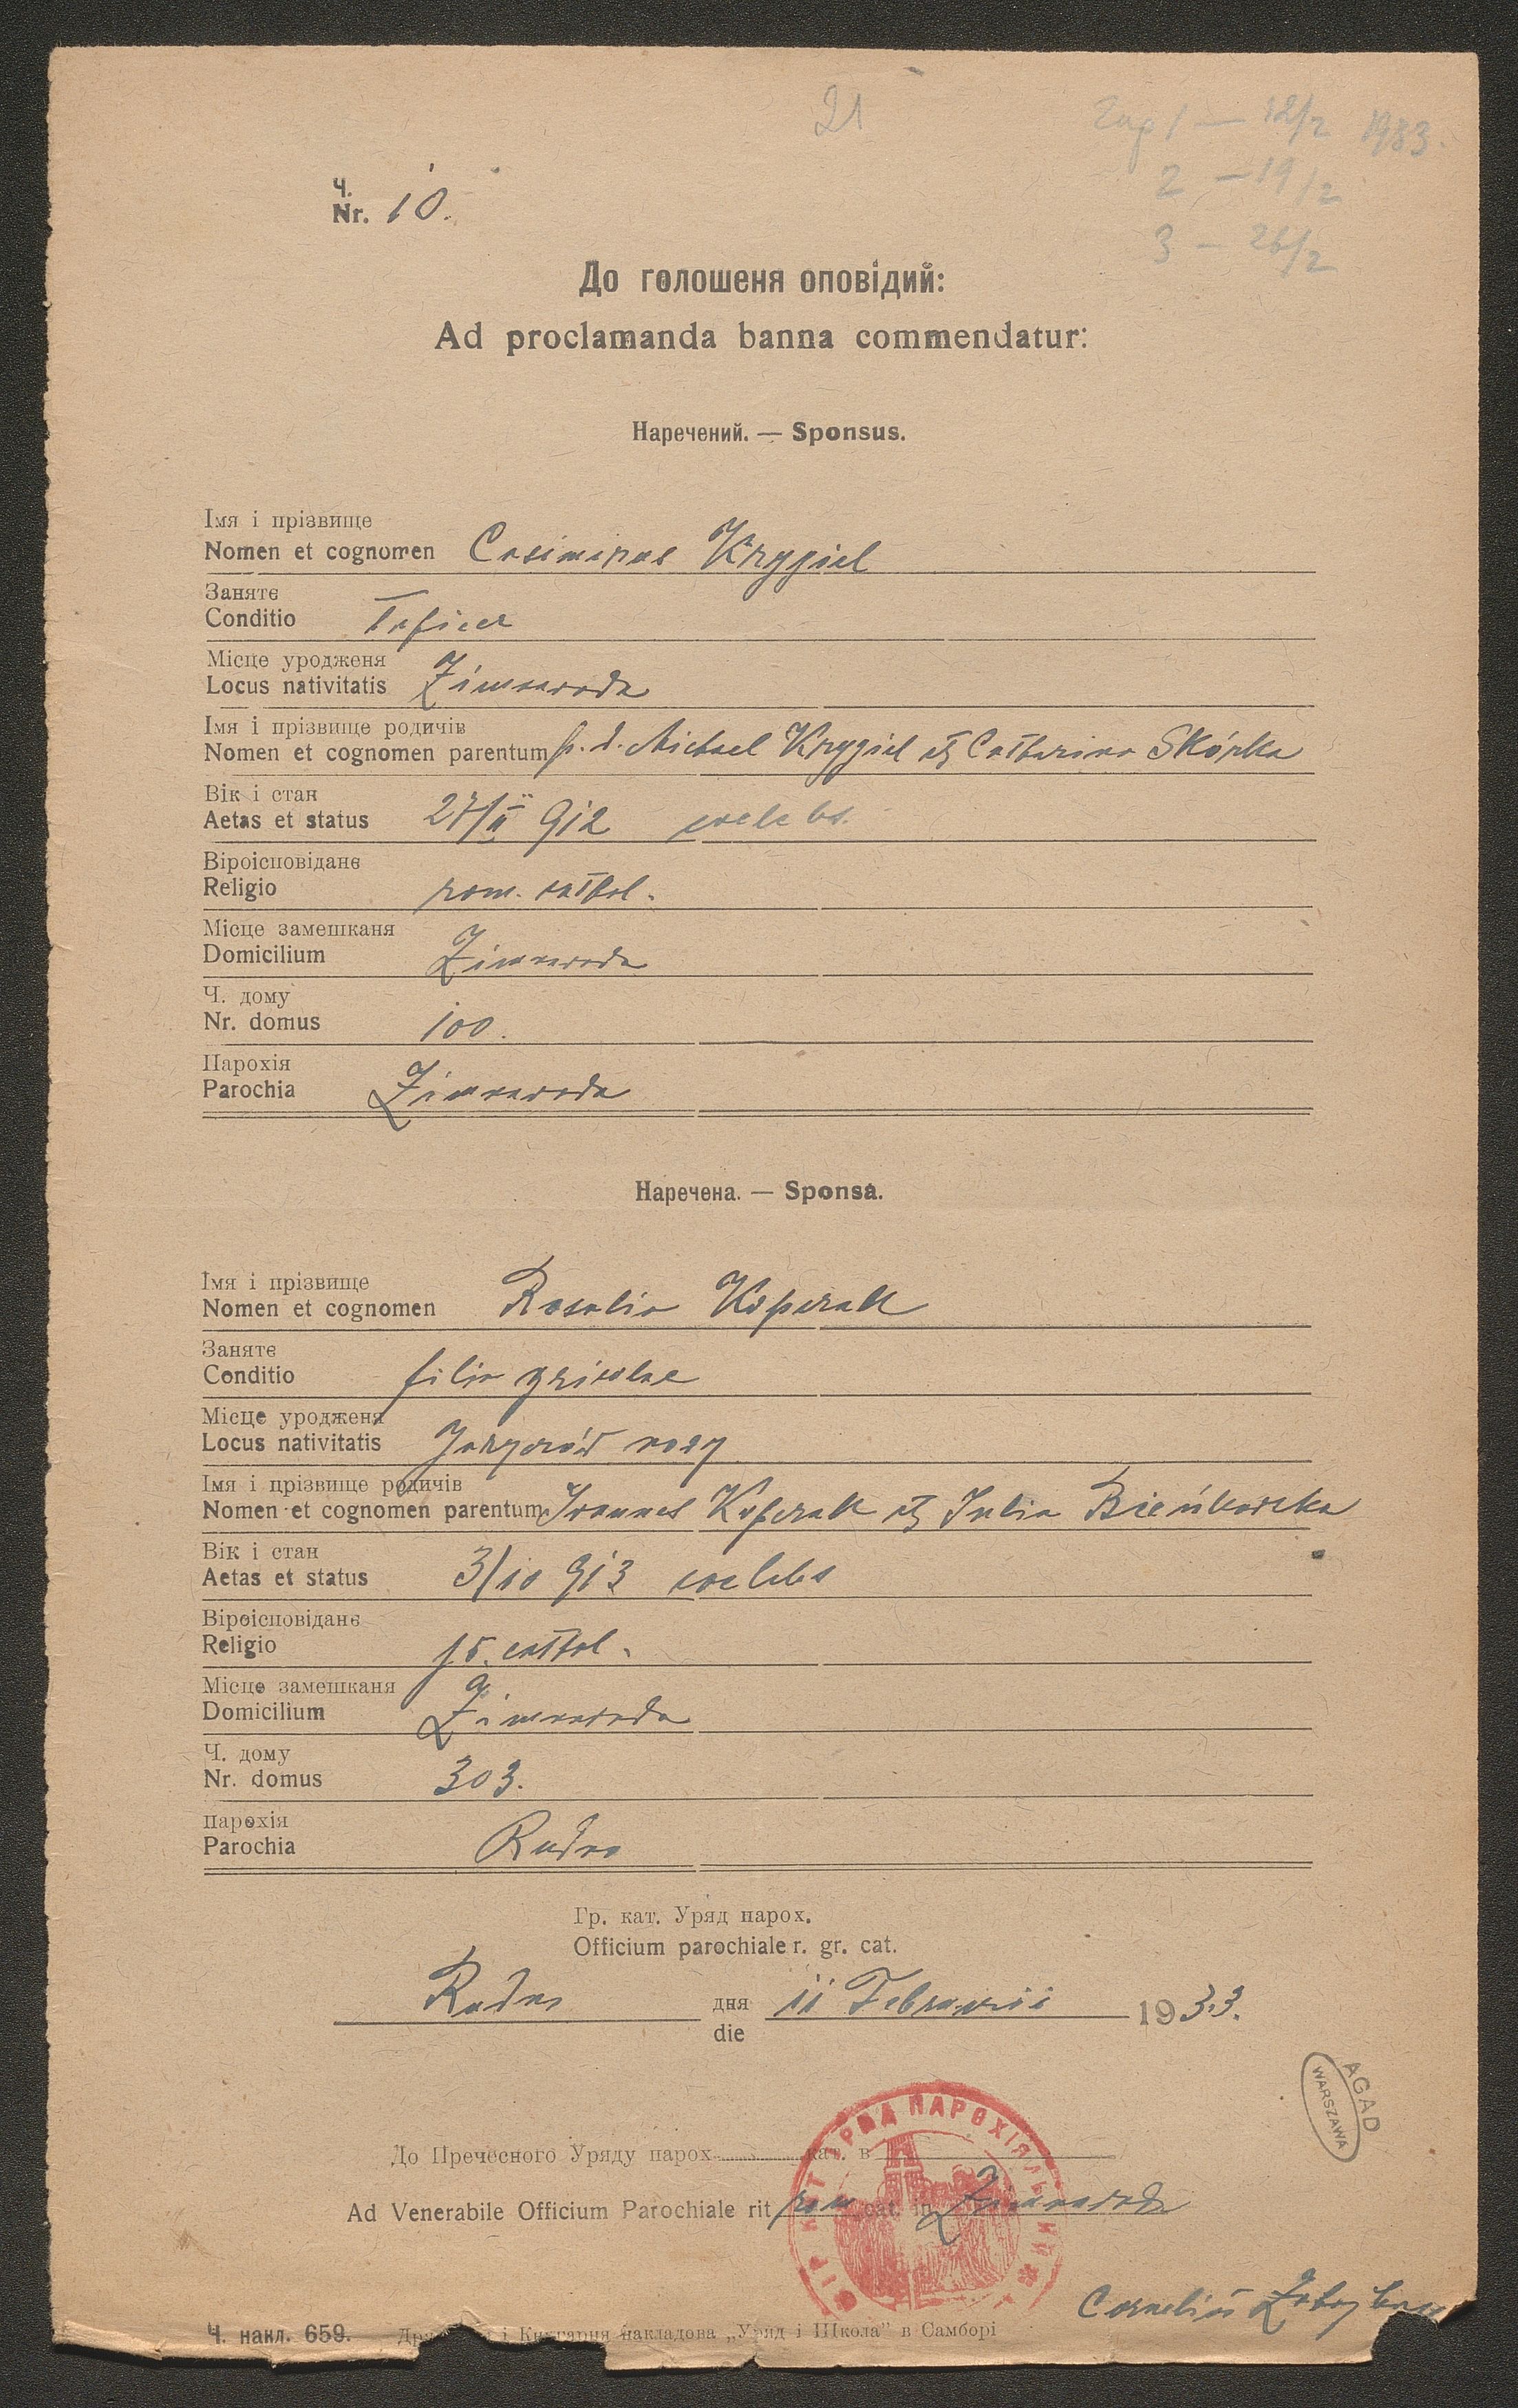 21
Zap 1 — 12/2 1933.
2 — 19/2
3 — 26/2
Ч.
Nr. 10.
До голошеня оповідий:
Ad proclamanda banna commendatur:
Наречений. — Sponsus.
Імя і прізвище
Nomen et cognomen Casimirus Krygiel
Занятє
Conditio
Місце уродженя
Locus nativitatis Zimnawoda
Імя і прізвище родичів
Nomen et cognomen parentum p. d. Michael Krygiel et Catharina Skórka
Вік і стан
Aetas et status 27/II 912 coelebs.
Віроісповіданє
Religio rom. cathol.
Місце замешканя
Domicilium Zimnawoda
Ч. дому
Nr. domus 100.
Парохія
Parochia Zimnawoda
Наречена. — Sponsa.
Імя і прізвище
Nomen et cognomen Rosalia Koperak
Занятє
Conditio filia agricolae
Місце уродженя
Locus nativitatis Jaryczów nowy
Імя і прізвище родичів
Nomen et cognomen parentum Ioannes Koperak et Julia Bieńkowska
Вік і стан
Aetas et status 3/10 913 coelebs
Віроісповіданє
Religio cathol.
Місце замешканя
Domicilium Zimnawoda
Ч. дому
Nr. domus 303.
парохія
Parochia Rudno
Гр. кат. Уряд парох.
Officium parochiale r. gr. cat.
Rudno дня 11 Februarii 1933.
die
AGAD
WARSZAWA
До Пречесного Уряду парох. кат. в
Ad Venerabile Officium Parochiale rit rom. cat. in Zimnawoda
УРЯД ПАРОХІЯЛЬНИЙ
Cornelius
Ч. накл. 659. і Книгарня накладова „Уряд і Школа" в Самборі